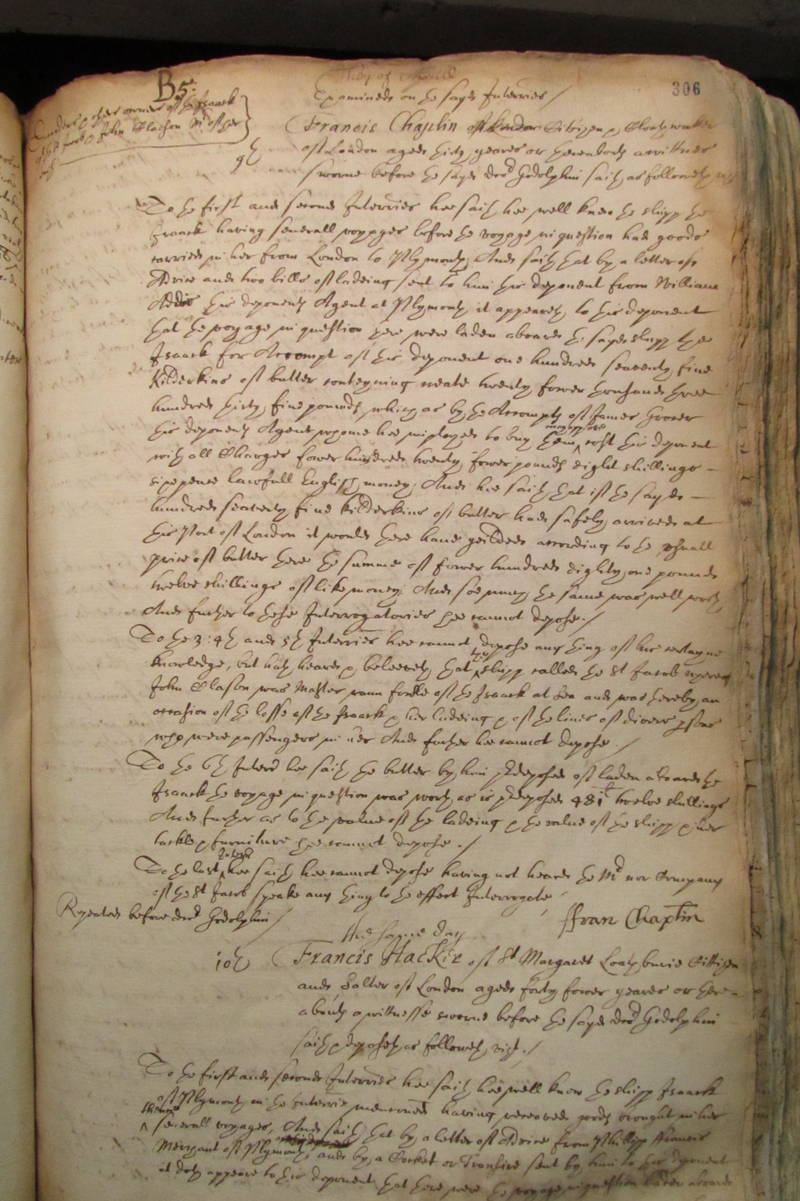 B5:
306
Examined on the sayd Interries /
Francis Chaplin of London Citizen
of London aged thirty yeares or thereabouts a wittnes
9th
sworne before the sayd docr Godolphin saith as followeth
To the first and second Interries hee saith hee well knew the shipp the
Isaack having severall voyages before the voyage in question had goods
carried in her from London to Plymouth, And saith that by a letter of
Advice and two bills of ladeing sent to him this deponent from William
this deponents Agent at Plymouth it appeareth to this deponent
that the voyage in question there were laden aboard the sayd shipp the
Isaack for Accompt of this deponent one hundred seaventy five
kilderkins of butter conteyning neate twenty fower thousand three
hundred thirty five pounds, which as by the Accompts of James
this deponents Agent whome hee imployed to buy them, cost this deponent
with all Charges fower hundred twenty fower pounds eight shillings
six pence lawfull English money, And hee saith that if the sayd
hundred seaventy five kilderkins of butter had safely arrived at
this Port of London it would here have yeilded according to the usuall
price of butter here the summe of fower hundred eighty one pounds
twelve shillings of like money And soe much the same was well worth
And further to these Interrogatories hee cannot depose. /
To the 3: 4th and 5th Interries hee cannot depose any thing of his certayne
knowledge, but hath heard & beleeveth that the shipp called the St Jacob whereof
John Clason was Master rann foule of the Isaack at Sea and was thereby an
occasion of the losse of the Isaack & her ladeing & of the lives of divers persons
who were passengers in her And further hee cannot depose /
To the 6th Interrie hee saith the butter by him predeposed of laden aboard the
Isaack the voyage in question was worth as is predeposed 481li twelve shillings
And further as to the value of the ladeing & the value of the shipp & her
tackle & furniture hee cannot depose. /
To the last Interrie hee saith hee cannot depose having not heard the Mr nor Company
of the St Jacob speake any thing to the effect Interrogate
Repeated before docr Godolphin /
ffran Chaplin
The same day
10th
Francis Hacker of St Margaret Loathburie Cittizen
and Salter of London aged forty fower yeares or there
abouts a wittnesse sworne before the sayd docr Godolphin
saith & deposeth as followeth, vizt. /
To the first and second Interries hee saith hee well knew the shipp Isaack
of Plymouth in the Interries mencioned having received goods brought in her
severall voyages, And saith that by a letter of Advice from Phillipp Francis
Merchant of Plymouth and by a Cocket or Transire sent by him to this deponent
it doth appeare to this deponent that there were the voyage in question laden aboard